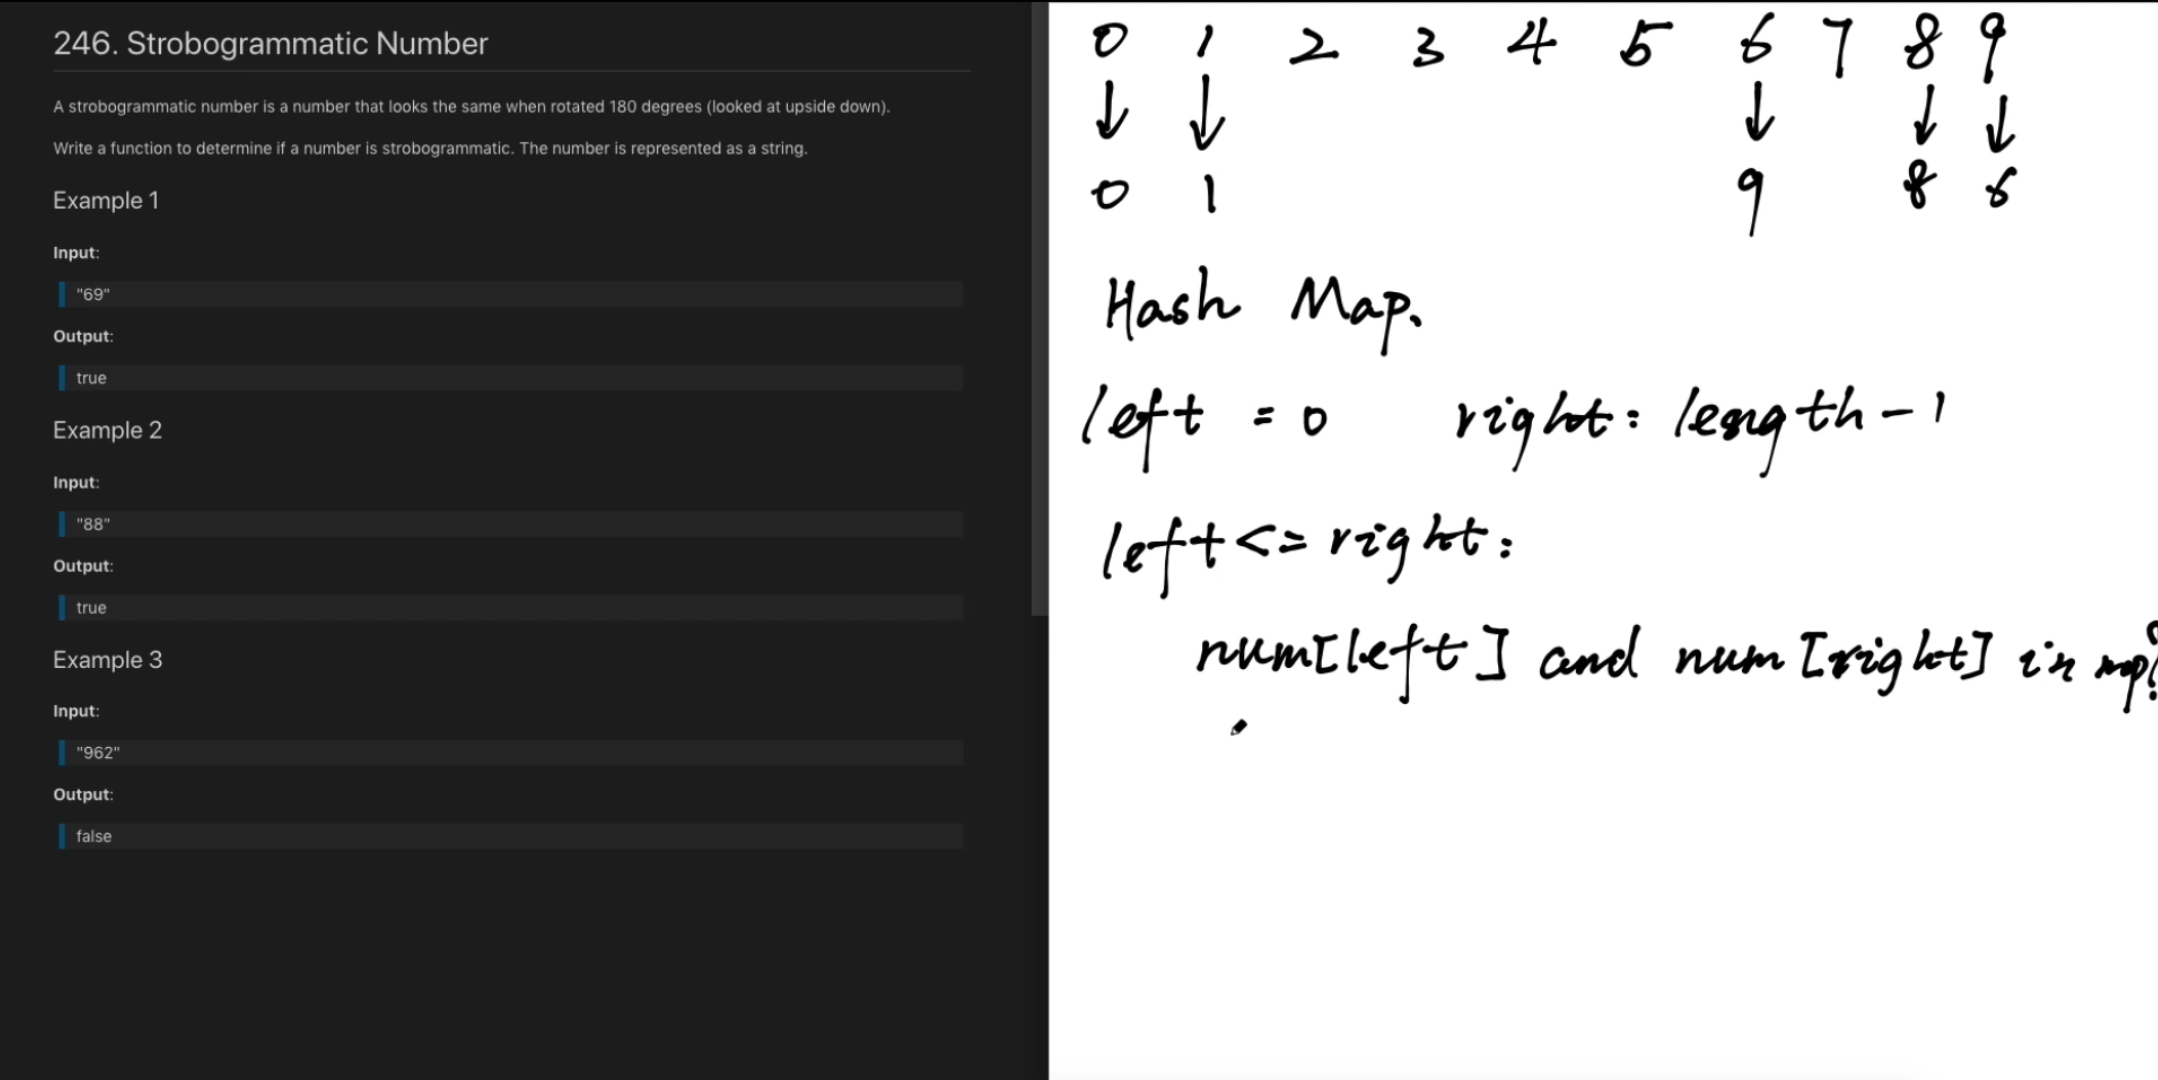 246. Strobogrammatic Number
A strobogrammatic number is a number that looks the same when rotated 180 degrees (looked at upside down).
Write a function to determine if a number is strobogrammatic. The number is represented as a string.
Example 1
Input:
"69"
Output:
true
Example 2
Input:
"88"
Output:
true
Example 3
Input:
"962"
Output:
false
0 1 2 3 4 5 6 7 8 9
↓ ↓ ↓ ↓ ↓
0 1 9 8 6
Hash Map.
left = 0 right: length-1
left <= right:
num[left] and num[right] in map?